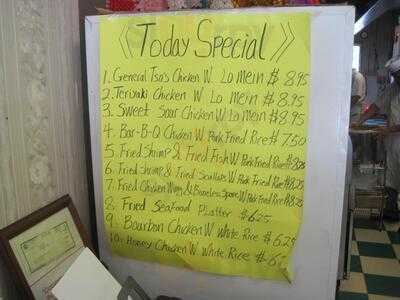 《Today Special》
1. General Tso's Chicken W Lo mein $8.95
2. Teriyaki Chicken W Lo mein $8.95
3. Sweet Soar Chicken W Lo mein $8.95
4. Bar-B-Q Chicken W Pork Fried Rice $7.50
5. Fried Shrimp & Fried Fish W Pork Fried Rice $8.25
6. Fried Shrimp & Fried Scallops W Pork Fried Rice $8.25
7. Fried Chicken Wing & Boneless Spare W Pork Fried Rice $8.25
8. Fried Seafood Platter $6.25
9. Bourbon Chicken W White Rice $6.25
10. Honey Chicken W White Rice $6.